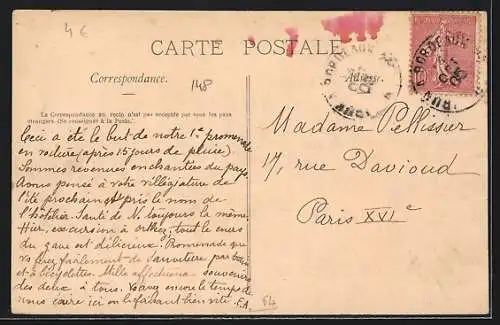 4 €
CARTE POSTALE
Correspondance.
148
Adresse.
La Correspondance au recto n'est pas acceptée par tous les pays
étrangers. (Se renseigner à la Poste.)
Ceci a été le but de notre 1e promenade
en voiture (après 15 jours de pluie)
Sommes revenues enchantées du pays
Avons pensé à votre villégiature de
l'été prochain pris le nom de
l'hôtel Santé de N. toujours la même.
Hier, excursion à Orthez, tout le cours
du gave est délicieux. Promenade que
vs ferez facilement de Sauveterre par train
et à bicyclettes. Mille affectueux souvenirs
des deux à tous. Vs avez encore le temps de
nous écrire ici en le faisant bien vite. E.A.
64
Madame Pellissier
17, rue Davioud
Paris XVIe
BORDEAUX
BORDEAUX